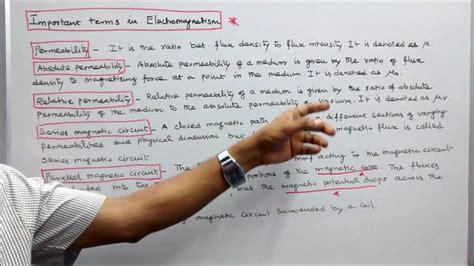 Important terms in Electromagnetism *
Permeability - It is the ratio bet. flux density to flux intensity. It is denoted as μ.
Absolute permeability - Absolute permeability of a medium is given by the ratio of flux
density to magnetising force at a point in the medium. It is denoted as
Relative permeability - Relative permeability of a medium is given by the ratio of absolute
permeability of the medium to the absolute permeability of vacuum. It is denoted as μr.
Series magnetic circuit - A closed magnetic path different sections of varying
permeabilities and physical dimension but magnetic flux is called
Series magnetic circuit
Parallel magnetic circuit - The acting in the magnetic circuit
into portions of the magnetic core. The fluxes
but the magnetic potential drops across the
magnetic circuit surrounded by a coil.